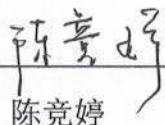 陈竞婷
陈竞婷